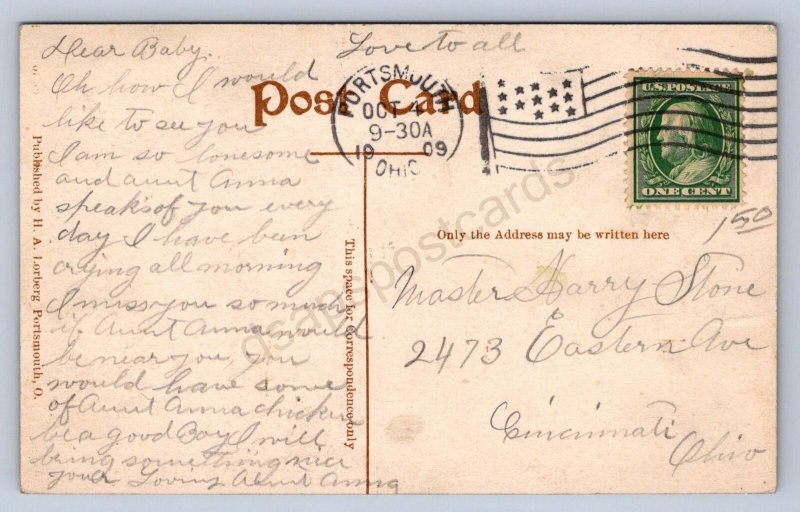 Dear Baby.
Love to all
Oh how I would
like to see you
I am so lonesome
and aunt Anna
speaks of you every
day I have been
crying all morning
I miss you so much
if Aunt Anna would
be near you, you
would have some
of Aunt Anna chicken
be a good Boy I will
bring something nice
your Loving Aunt Anna
Post Card
PORTSMOUTH
OCT 4
9-30A
1909
OHIO
U.S. POSTAGE
ONE CENT
150
Only the Address may be written here
Master Harry Stone
2473 Eastern Ave
Cincinnati
Ohio
This space for Correspondence only
Published by H. A. Lorberg, Portsmouth, O.